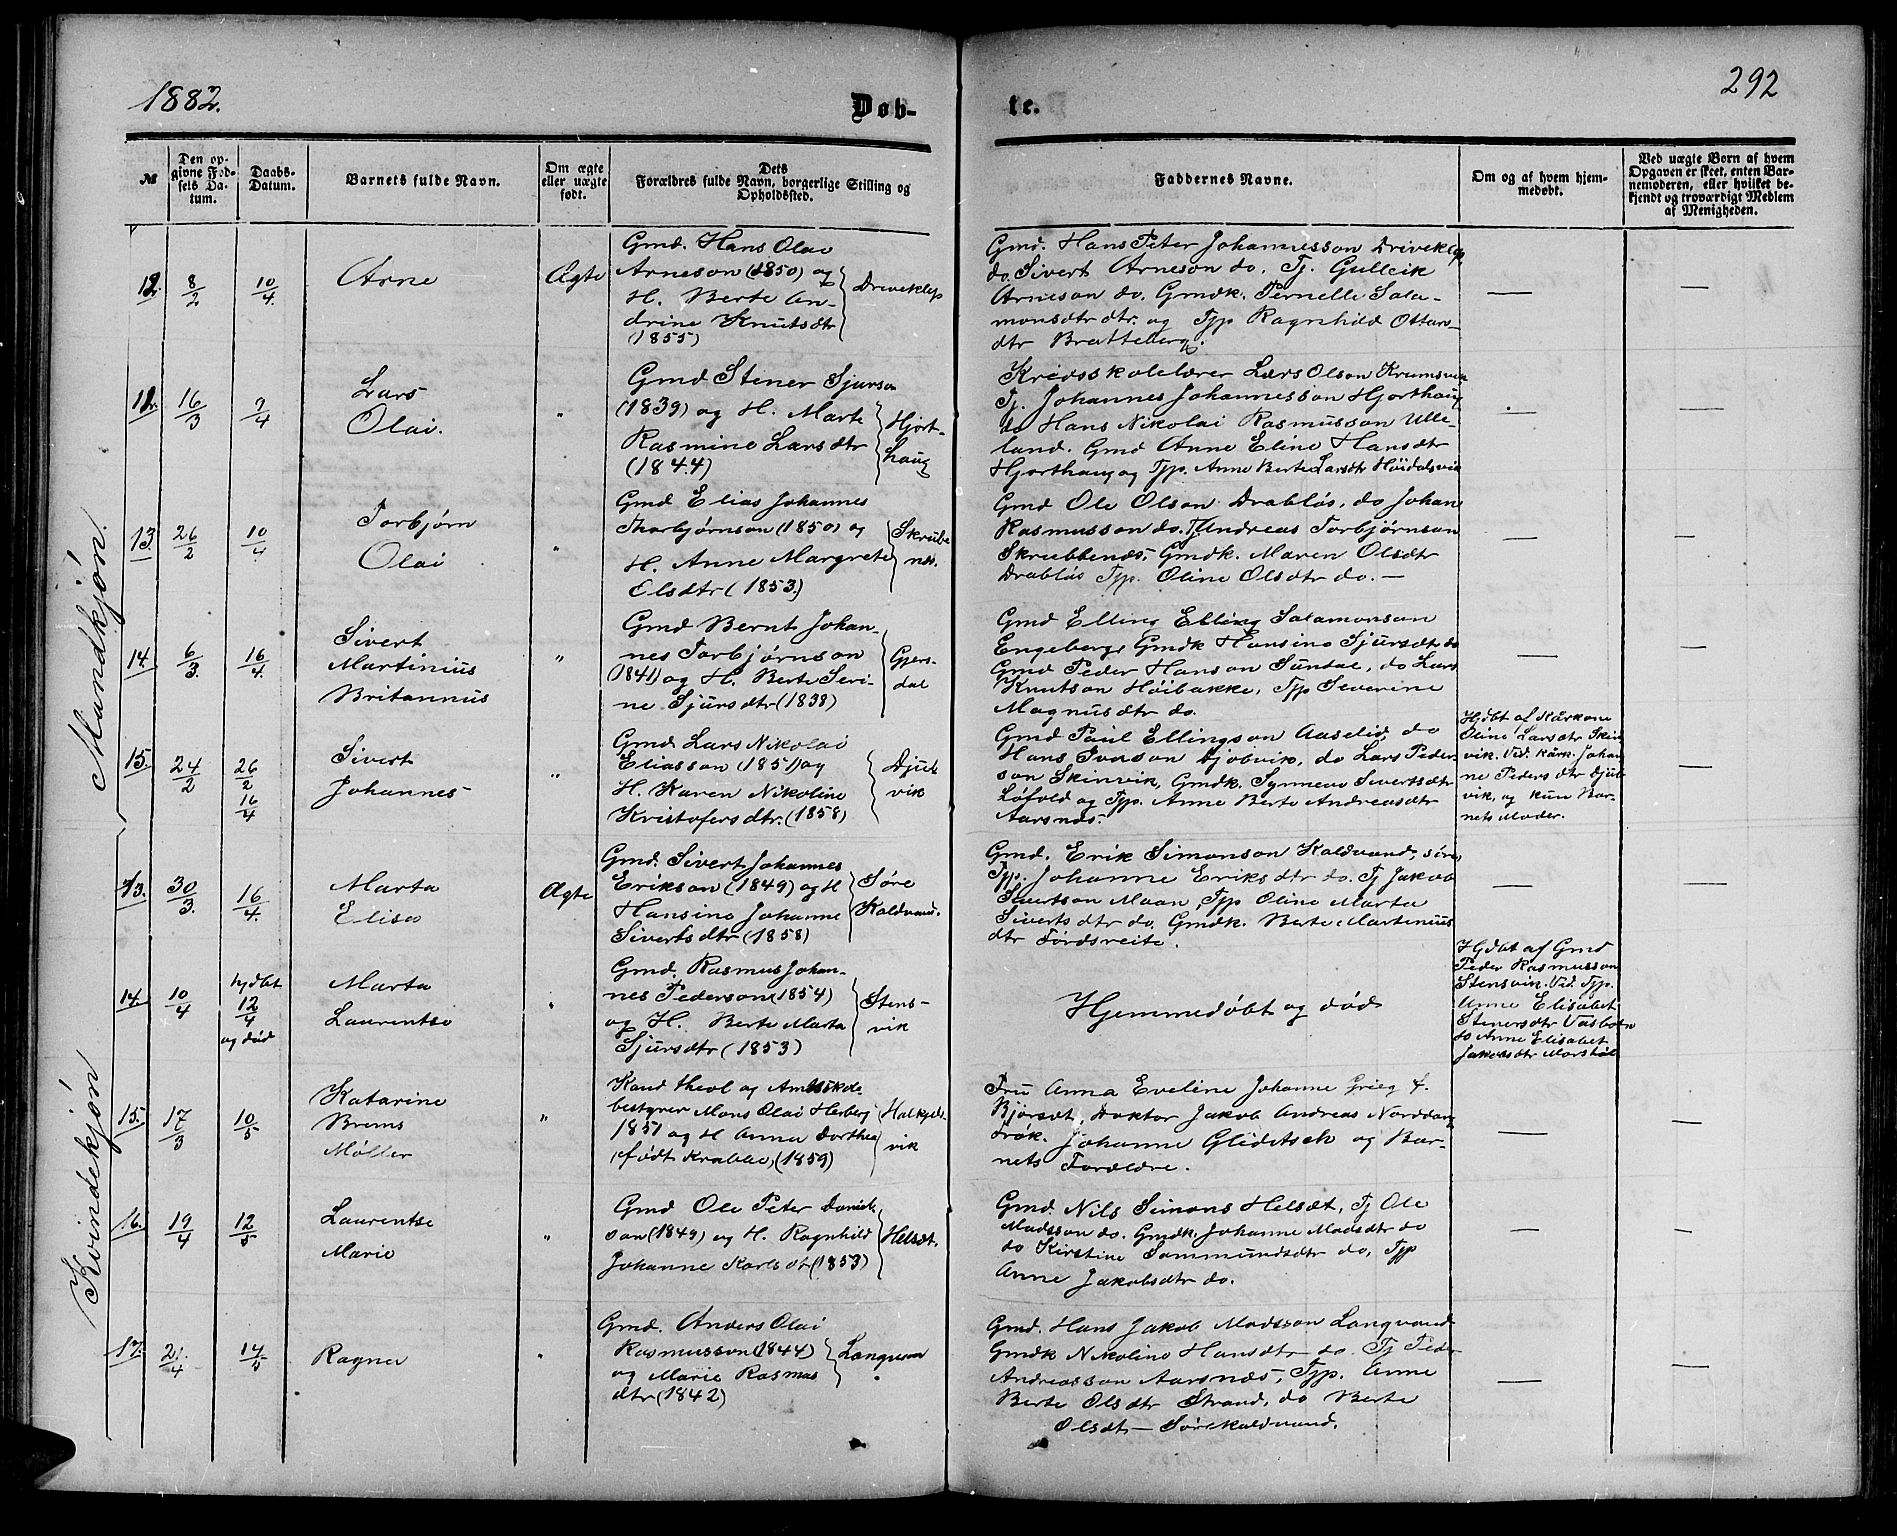 1882.
Døb-
te.
292
№
Den op-
givne Fød-
sels Da-
tum.
Daabs-
Datum.
Barnets fulde Navn.
Om ægte
eller uægte
født.
Dets
Forældres fulde Navn, borgerlige Stilling og
Opholdssted.
Faddernes Navne.
Om og af hvem hjem-
medøbt.
Ved uægte Born af hvem
Opgaven er skeet, enten Bar-
nemoderen, eller hvilket be-
kjendt og troværdigt Medlem
af Menigheden.
Mandkjøn.
12. 8/2 10/4 Arne Ægte
Gmd. Hans Olai
Arneson (1850) og
H. Berte An-
drine Knutsdtr
(1855)
Driveklep
Gmd. Hans Peter Johannesson Driveklep
do Sivert Arneson do. Tj. Gulleik
Arneson do. Gmdk. Pernelle Sala-
monsdtr dtr. og Tjp Ragnhild Ottars-
dtr Bratteberg.
12. 16/3 9/4 Lars
Olai. "
Gmd Stener Sjurson
(1839) og H. Marte
Rasmine Larsdtr
(1844)
Hjort-
haug
Kredsskolelærer Lars Olson Krumsvik
Tj. Johannes Johannesson Hjorthaug
do Hans Nikolai Rasmusson Ulle-
land. Gmd Anne Eline Hansdtr
Hjorthaug og Tjp. Anne Berte Larsdtr Høidalsvik
13. 26/2 10/4 Torbjørn
Olai "
Gmd Elias Johannes
Thorbjørnson (1850) og
H. Anne Margrete
Elsdtr (1853.)
Skrube
næs.
Gmd Ole Olson Drabløs, do Johan
Rasmusson do. Tj Andreas Torbjørnson
Skrubbenæs, Gmdk. Maren Olsdtr
Drabløs Tjp. Oline Olsdtr do. —
14. 6/3 16/4 Sivert
Martinius
Britannus "
Gmd Bernt Johan-
nes Torbjørnson
(1841) og H. Berte Seri-
ne Sjursdtr (1838)
Gjers-
dal
Gmd Elling Elling Salamonson
Engeberg Gmdk Hansine Sjursdtr do
Gmd Peder Hanson Sundal, do Lars
Knutson Høibakke, Tjp Severine
Magnusdtr do.
15. 24/2 26/2 16/4 Sivert
Johannes "
Gmd Lars Nikolai
Eliasson (1851) og
H. Karen Nikoline
Kristofersdtr. (1858)
Djub-
vik
Gmd Paul Ellingson Aaselid, do
Hans Iverson Djobvik, do Lars Peder
son Skinvik, Gmdk. Synneve Sivertsdtr
Løfold og Tjp. Anne Berte Andreasdtr
Aarsnæs.
Hjdbt af Kårkone
Oline Larsdtr Skin
vik. Vid. Kårk. Johan
ne Pedersdtr Djub-
vik, og kun Bar-
nets Moder.
Kvindekjøn
13. 30/3 16/4. Marta
Elise Ægte
Gmd. Sivert Johannes
Erikson (1849) og H
Hansine Johanne
Sivertsdtr (1858)
Søre
Kaldvand.
Gmd. Erik Simonson Kaldvand, søre
Tjp. Johanne Eriksdtr do. Tj Jakob
Sivertson Maan, Tjp Oline Marta
Sivertsdtr do. Gmdk. Berte Martenius
dtr Førdsreite.
14. 10/4 hjdbt
12/4
og død
Marta
Laurentse "
Gmd. Rasmus Johan-
nes Pederson (1854)
og H. Berte Marta
Sjursdtr (1853)
Stens-
vik
Hjemmedøbt og død
Hjdbt af Gmd
Peder Rasmusson
Stensvik. Vid. Tjp.
Anne Elisabet
Stenersdtr Vasbotn
do Anne Elisabet
Jakobsdtr Morstøl
15. 17/3 10/5 Katarine
Brems
Møller "
Kand theol og Amtskole
bestyrer Mons Olai Herberg
1851 og H Anna Dorthea
født Krabbe, (1859)
Halkjels-
vik
Fru Anna Eveline Johanne Grieg f.
Bjørsæt, Doktor Jakob Andreas Norddan,
Frøk. Johanne Gleditsch og Bar-
nets Forældre.
16. 19/4 12/5 Laurentse
Marie "
Gmd Ole Peter Daniels
son (1849) og H. Ragnhild
Johanne Karlsdtr (1853)
Helsæt.
Gmd Nils Simons Helsæt, Tj Ole
Madsson do. Gmdk. Johanne Madsdtr do
do Kirstine Sammundsdtr do, Tjp
Anne Jakobsdtr do.
17. 21/4 14/5 Ragna "
Gmd. Anders Olai
Rasmusson (1844)
og Marie Rasmus
dtr (1842)
Langvan
Gmd. Hans Jakob Madsson Langvand
Gmdk Nikoline Hansdtr do. Tj Peder
Andreasson Aarsnæs, Tjp. Anne
Berte Olsdtr Strand, do Berte
Olsdtr — Sørekaldvand.